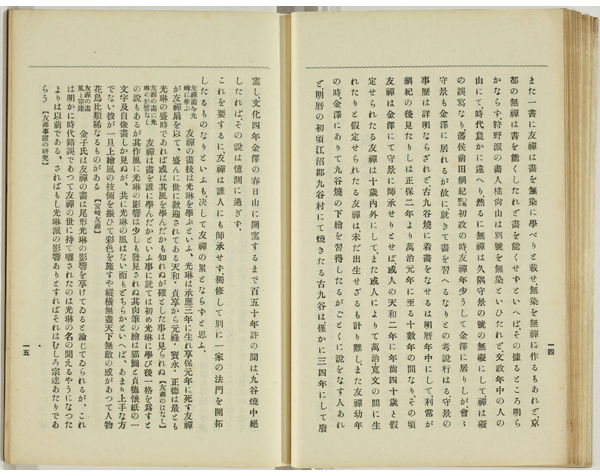 一四
また一書に友禪は畫を無染に學べりと載せ、無染を無禪に作るもあれど、京
都の無禪は書を能くしたれど畫を能くせずといへば、その據るところ明ら
かならず、狩野派の畫人橘尚山は別號を無染といひたれど、文政年中の人の
山にて、時代遙かに違へり、然るに無禪は久隅守景の號の無礙にして、禪は礙
の誤寫なり、藩侯前田綱紀初政の時、友禪年少うして金澤に居りしが、會々
守景も金澤に居れるが故に就きて畫を習へるなりとの考說行はる、守景の
事歷は詳明ならざれど、古九谷燒に着畫をなせるは明曆年中にして、利常が
綱紀の後見たりしは正保二年より萬治元年に至る十數年の間なり、その頃
友禪は金澤にて守景に師承せりとせば、或人の天和二年に年齒四十歲と假
定せられたる友禪は十歲內外にして、また或人によりて萬治寬文の間に生
れたりと假定せられたる友禪は未だ出生せざるも計り難し、また友禪幼年
の時金澤にありて九谷燒の下繪を習得したるがごとくに說をなす人あれ
ど、明曆の初頃江沼郡九谷村にて燒きたる古九谷は僅かに三四年にして廢
窯し、文化四年金澤の春日山に開窯するまで百五十年許の間は、九谷燒中絕
したれば、その說は憶測に過ぎず、
これを要するに、友禪は誰人にも師承せず、獨修して別に一家の法門を開拓
したるものなりといふも、決して友禪の累とならずと思ふ、
友禪畫を光
琳に學ぶ
友禪の畫技は光琳を學ぶといふ、光琳は承應三年に生れ享保元年に死す、友禪
が友禪扇を以て、盛んに世に歡迎されてある天和・貞享から元祿・寶永・正德は最とも
光琳の盛時であれば或は其風を學んだかも知れぬが確とした事は見られぬ【友禪のはなし】
友禪の畫に光
琳の影響なし
友禪は畫を誰に學んだかといふ事に就ては初め光琳に學び後一格を爲すと
の說もあるが、其作風に光琳の影響は少しも發見されぬ、其肉筆の繪は猫圖と貞德懷紙の一
文字及自像畫しか見ぬが、共に光琳の風はない而もどちらかといへば、あまり上手な方
でない、彼が一旦上繪風の技倆を振ひて彩色を施すや縱橫無盡天下無敵の感があつて人物
花鳥比類稀なるものがある【宮崎友禪】
友禪の畫
風と宗達
金子氏は友禪の畫は尾形光琳の影響を享けてゐると論じてゐられるが、これ
は明かに時代錯誤であつて友禪の世に持て囃されたのは光琳の名の聞えるやうになつた
よりは以前である、さればもし光琳派の影響ありとすればそれはむしろ宗達あたりであ
らう【友禪事蹟の硏究】
一五